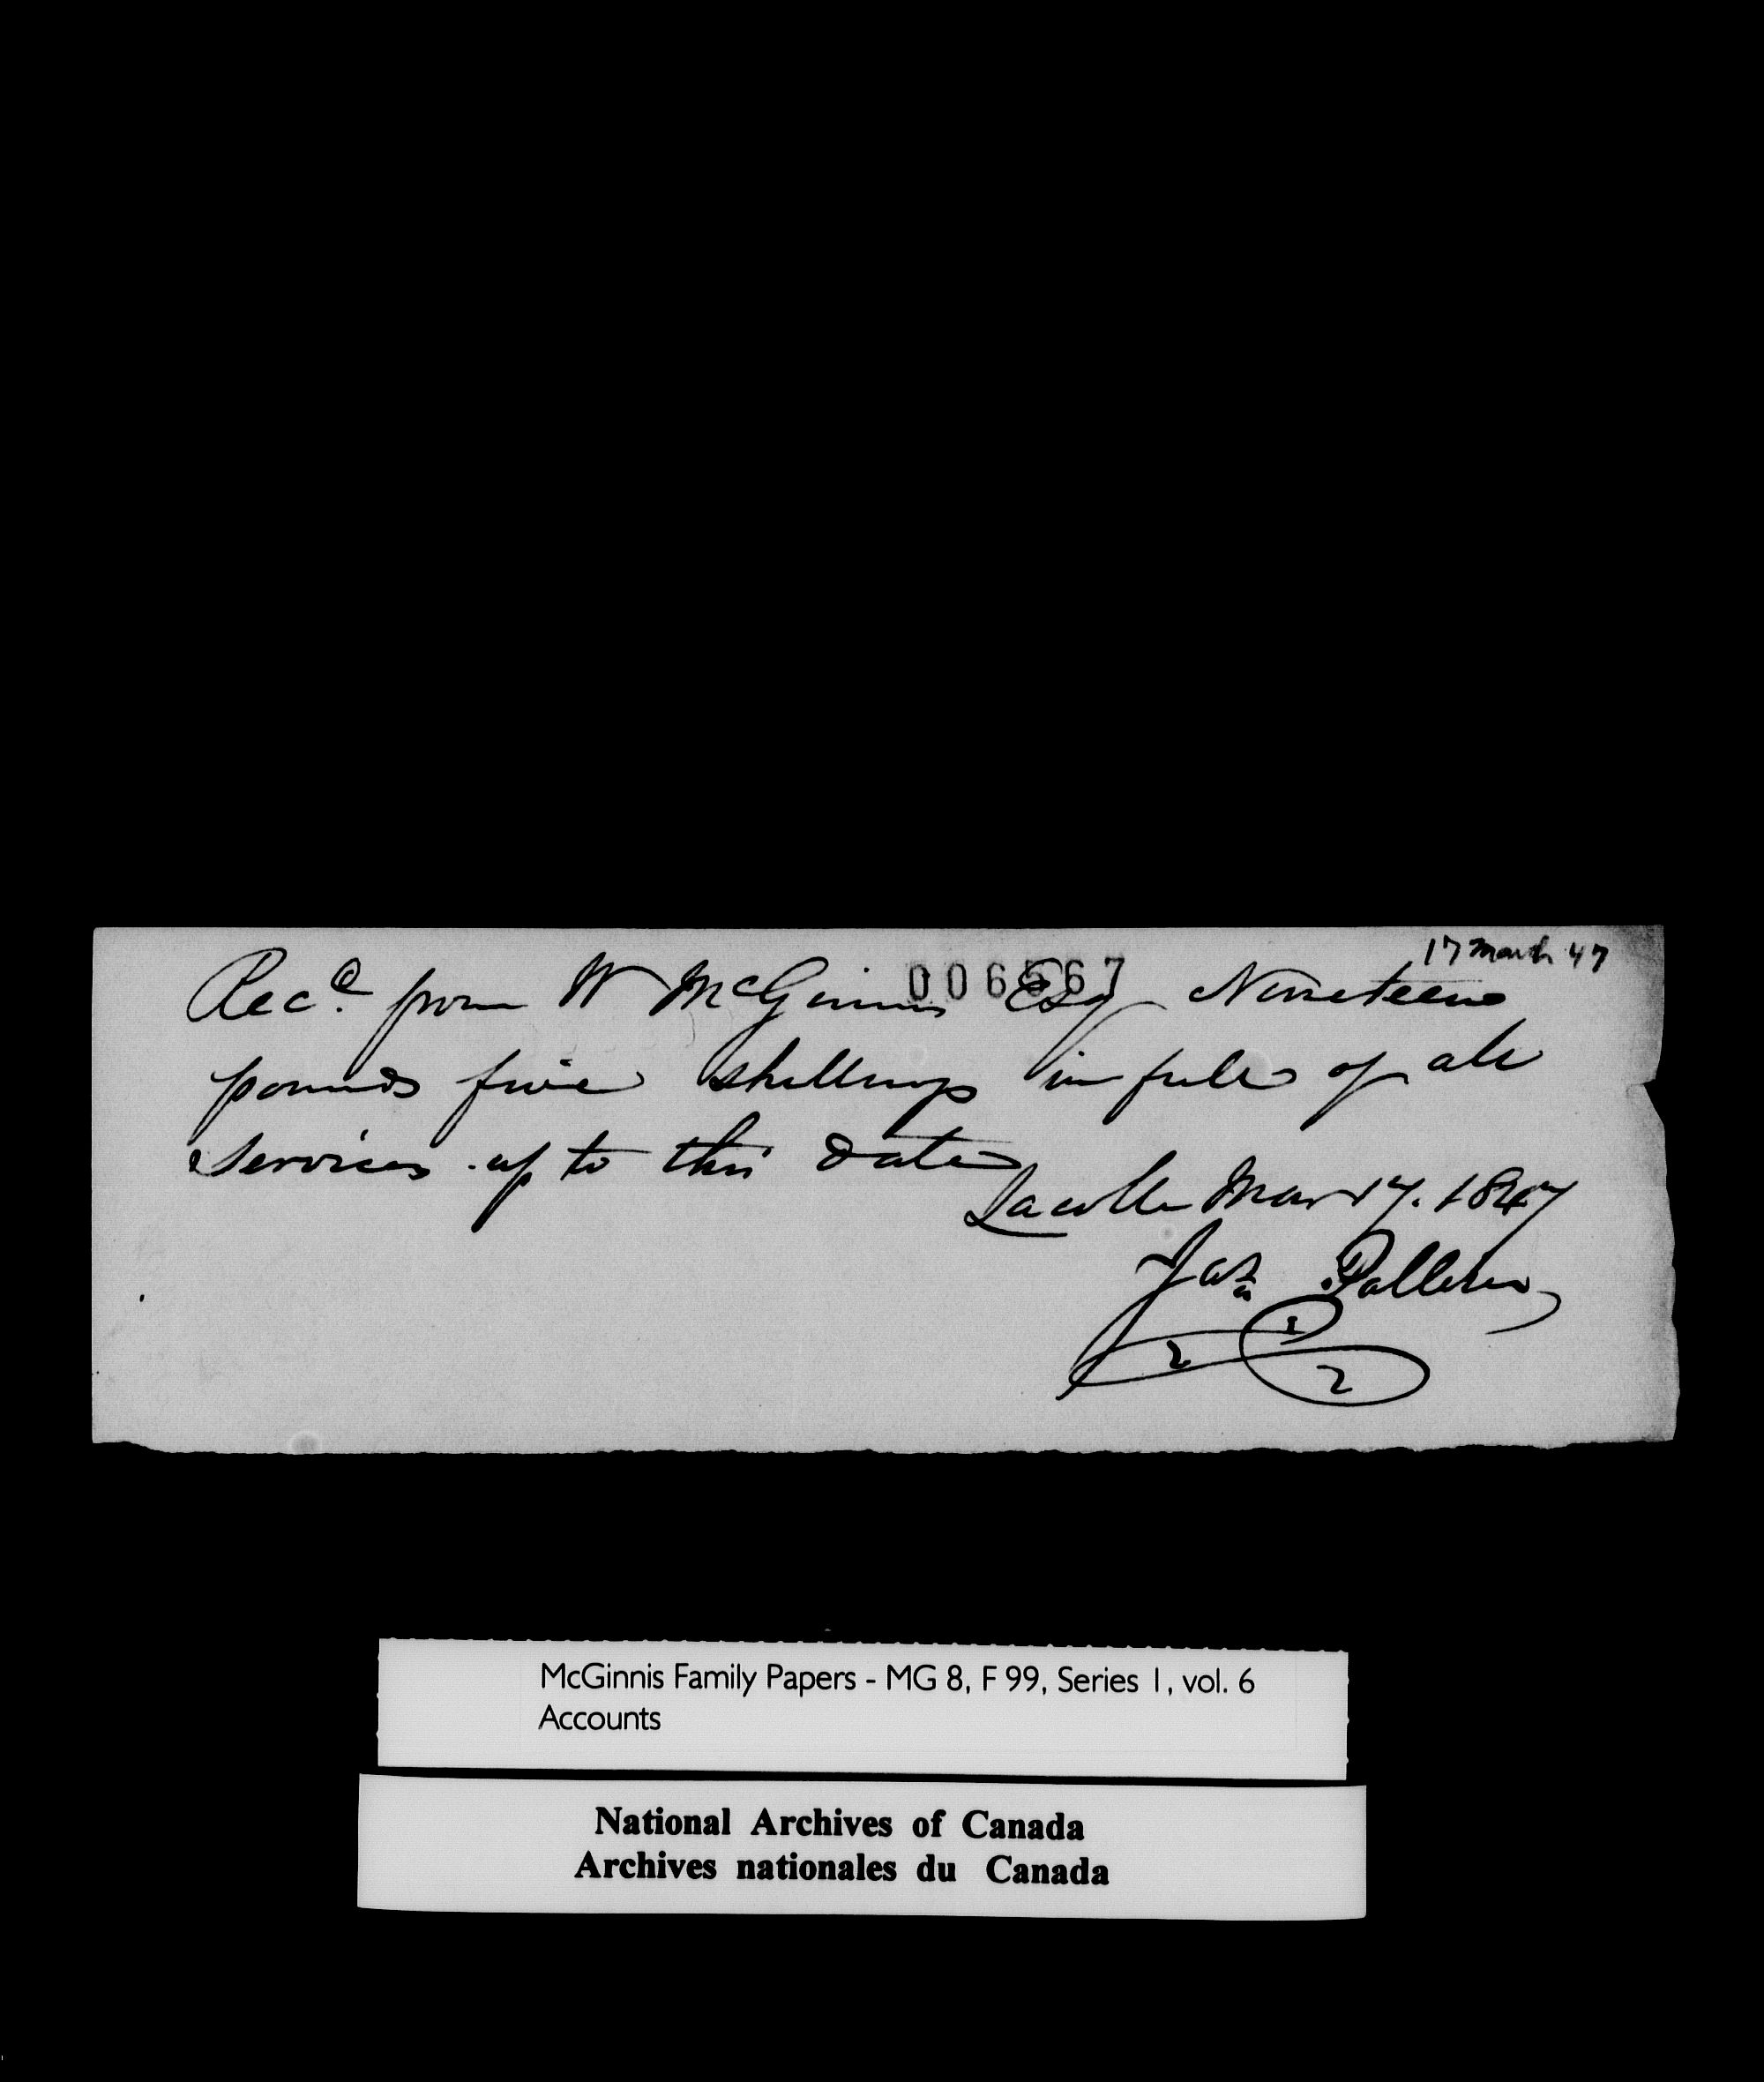 17 March 47
006567
Recd. from W McGinnis Esq Nineteen
pounds five shillings in full of all
services up to this date
Lacolle Mar 17. 1847
Jas
1
2 2
McGinnis Family Papers - MG 8, F 99, Series 1, vol. 6
Accounts
National Archives of Canada
Archives nationales du Canada